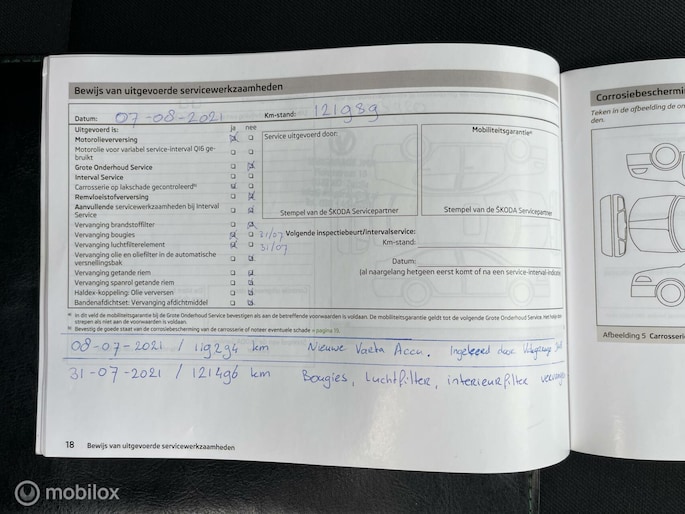 Bewijs van uitgevoerde servicewerkzaamheden
Datum: 07-08-2021 Km-stand: 121989
Uitgevoerd is: ja nee
Motorolieverversing
Motorolie voor variabel service-interval QI6 ge-
bruikt
Grote Onderhoud Service
Interval Service
Carrosserie op lakschade gecontroleerd
Remvloeistofverversing
Aanvullende servicewerkzaamheden bij Interval
Service
Vervanging brandstoffilter
Vervanging bougies 31/07
Vervanging luchtfilterelement 31/07
Vervanging olie en oliefilter in de automatische
versnellingsbak
Vervanging getande riem
Vervanging spanrol getande riem
Haldex-koppeling: Olie verversen
Bandenafdichtset: Vervanging afdichtmiddel
Service uitgevoerd door:
Stempel van de ŠKODA Servicepartner
Mobiliteitsgarantie
Stempel van de ŠKODA Servicepartner
Volgende inspectiebeurt/intervalservice:
Km-stand:
Datum:
(al naargelang hetgeen eerst komt of na een service-interval-indicatie
a) In dit veld de mobiliteitsgarantie bij de Grote Onderhoud Service bevestigen als aan de betreffende voorwaarden is voldaan. De mobiliteitsgarantie geldt tot de volgende Grote Onderhoud Service. Het
strepen als niet aan de voorwaarden is voldaan.
b) Bevestig de goede staat van de corrosiebescherming van de carrosserie of noteer eventuele schade
08-07-2021 / 119294 km Nieuwe Varta Accu. Ingeleerd door
31-07-2021 / 121496 km Bougies, luchtfilter, interieurfilter
18 Bewijs van uitgevoerde servicewerkzaamheden
Corrosiebeschermin
Teken in de afbeelding de on
den.
Afbeelding 5 Carrosserie
mobilox